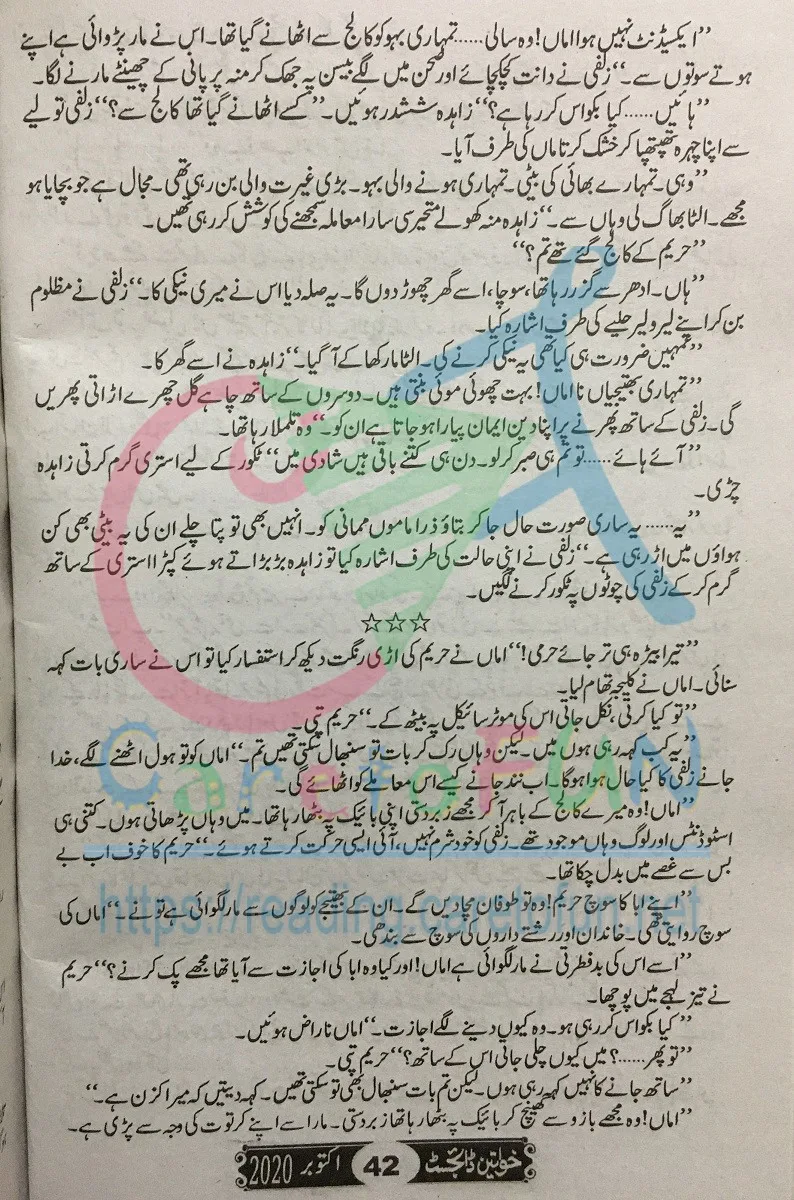 ”ایکسیڈنٹ نہیں ہوا اماں! وہ سالی...... تمہاری بہو کو کالج سے اٹھانے گیا تھا۔ اس نے مار پڑوائی ہے اپنے
ہوتے سوتوں سے۔“ زلفی نے دانت کچکچائے اور صحن میں لگے بیسن پہ جھک کر منہ پر پانی کے چھینٹے مارنے لگا۔
”ہائیں...... کیا بکواس کر رہا ہے؟“ زاہدہ ششدر ہوئیں۔ ”کسے اٹھانے گیا تھا کالج سے؟“ زلفی تولیے
سے اپنا چہرہ تھپتھپا کر خشک کرتا ماں کی طرف آیا۔
”وہی۔ تمہارے بھائی کی بیٹی۔ تمہاری ہونے والی بہو۔ بڑی غیرت والی بن رہی تھی۔ مجال ہے جو بچایا ہو
مجھے۔ الٹا بھاگ لی وہاں سے۔“ زاہدہ منہ کھولے متحیر سی سارا معاملہ سمجھنے کی کوشش کر رہی تھیں۔
”حریم کے کالج گئے تھے تم؟“
”ہاں۔ ادھر سے گزر رہا تھا، سوچا، اسے گھر چھوڑ دوں گا۔ یہ صلہ دیا اس نے میری نیکی کا۔“ زلفی نے مظلوم
بن کر اپنے لیرو لیر حلیے کی طرف اشارہ کیا۔
”تمہیں ضرورت ہی کیا تھی یہ نیکی کرنے کی۔ الٹا مار کھا کے آ گیا۔“ زاہدہ نے اسے گھرکا۔
”تمہاری بھتیجیاں نا اماں! بہت چھوئی موئی بنتی ہیں۔ دوسروں کے ساتھ چاہے گل چھرے اڑاتی پھریں
گی۔ زلفی کے ساتھ پھرنے پر اپنا دین ایمان پیارا ہو جاتا ہے ان کو۔“ وہ تلملا رہا تھا۔
”آئے ہائے...... تو تم ہی صبر کر لو۔ دن ہی کتنے باقی ہیں شادی میں“ ٹکور کے لیے استری گرم کرتی زاہدہ
چڑی۔
”یہ...... یہ ساری صورت حال جا کر بتاؤ ذرا ماموں ممانی کو۔ انہیں بھی تو پتا چلے ان کی یہ بیٹی بھی کن
ہواؤں میں اڑ رہی ہے۔“ زلفی نے اپنی حالت کی طرف اشارہ کیا تو زاہدہ بڑبڑاتے ہوئے کپڑا استری کے ساتھ
گرم کر کے زلفی کی چوٹوں پہ ٹکور کرنے لگیں۔
☆☆☆
”تیرا بیڑہ ہی تر جائے حرمی!“ اماں نے حریم کی اڑی رنگت دیکھ کر استفسار کیا تو اس نے ساری بات کہہ
سنائی۔ اماں نے کلیجہ تھام لیا۔
”تو کیا کرتی، نکل جاتی اس کی موٹر سائیکل پہ بیٹھ کے۔“ حریم تپی۔
”یہ کب کہہ رہی ہوں میں۔ لیکن وہاں رک کر بات تو سنبھال سکتی تھیں تم۔“ اماں کو تو ہول اٹھنے لگے، خدا
جانے زلفی کا کیا حال ہوا ہوگا۔ اب نند جانے کیسے اس معاملے کو اٹھائے گی۔
”اماں! وہ میرے کالج کے باہر آ کر مجھے زبردستی اپنی بائیک پہ بٹھا رہا تھا۔ میں وہاں پڑھاتی ہوں۔ کتنی ہی
اسٹوڈنٹس اور لوگ وہاں موجود تھے۔ زلفی کو خود شرم نہیں، آئی ایسی حرکت کرتے ہوئے۔“ حریم کا خوف اب بے
بس سے غصے میں بدل چکا تھا۔
”اپنے ابا کا سوچ حریم! وہ تو طوفان مچا دیں گے۔ ان کے بھتیجے کو لوگوں سے مار لگوائی ہے تو نے۔“ اماں کی
سوچ روایتی تھی۔ خاندان اور رشتے داروں کی سوچ سے بندھی۔
”اسے اس کی بدفطرتی نے مار لگوائی ہے اماں! اور کیا وہ ابا کی اجازت سے آیا تھا مجھے پک کرنے؟“ حریم
نے تیز لہجے میں پوچھا۔
”کیا بکواس کر رہی ہو۔ وہ کیوں دینے لگے اجازت۔“ اماں ناراض ہوئیں۔
”تو پھر......؟ میں کیوں چلی جاتی اس کے ساتھ؟“ حریم تپی۔
”ساتھ جانے کا نہیں کہہ رہی ہوں۔ لیکن تم بات سنبھال بھی تو سکتی تھیں۔ کہہ دیتیں کہ میرا کزن ہے۔“
”اماں! وہ مجھے بازو سے کھینچ کر بائیک پہ بٹھا رہا تھا زبردستی۔ مار اسے اپنے کرتوت کی وجہ سے پڑی ہے۔
خواتین ڈائجسٹ 42 اکتوبر 2020
CaretoFUN
https://reading.caretofun.net